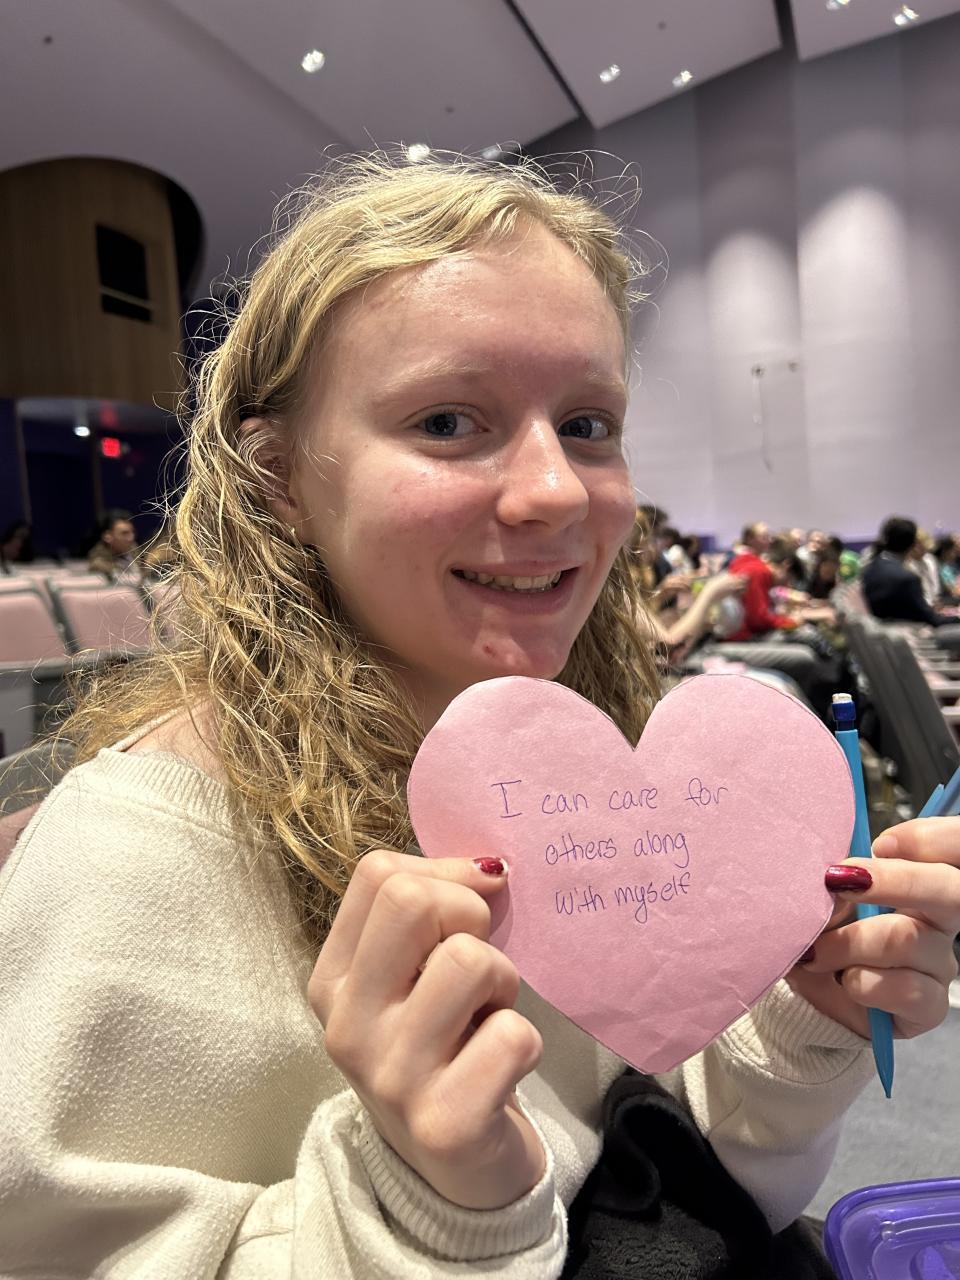 I can care for
others along
with myself